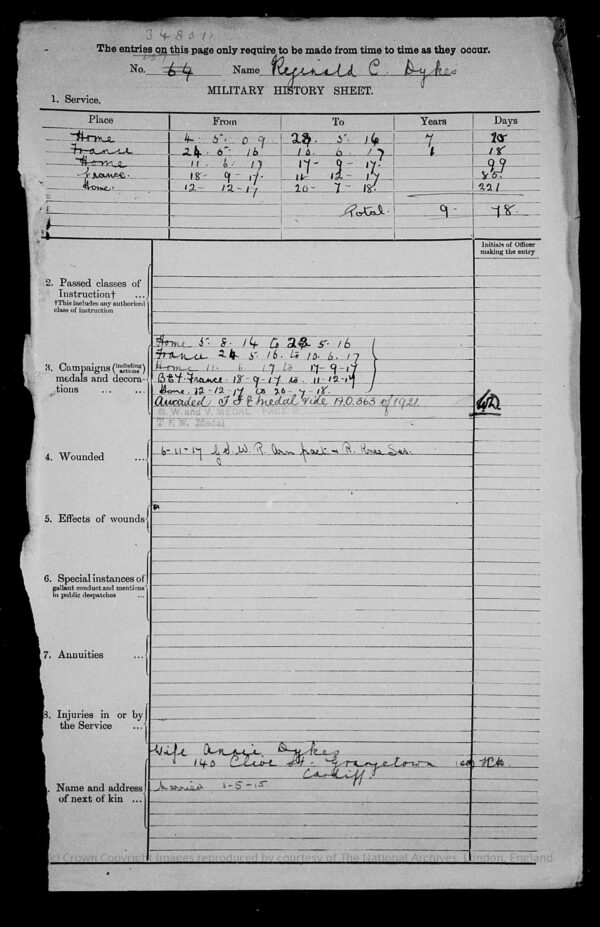 348011
The entries on this page only require to be made from time to time as they occur.
No. 64 Name Reginald C. Dykes
MILITARY HISTORY SHEET.
1. Service.
Place From To Years Days
Home 4. 5. 09 23. 5. 16 7 20
France 24. 5. 16 10. 6. 17 1 18
Home 11. 6. 17 17-9-17. 99
France. 18-9-17. 11 12-17 85.
Home. 12-12-17 20-7-18. 221
Total. 9- 78.
Initials of Officer
making the entry
2. Passed classes of
Instruction† ...
†This includes any authorised
class of instruction
Home 5. 8. 14 to 23 5. 16
France 24 5 16. to 10. 6. 17
3. Campaigns (including actions)
Home 11. 6. 17 to 17-9-17
medals and decora-
B.E.F. France. 18-9-17 to 11-12-17
tions ... ...
Home. 12-12-17 to 20-7-18.
Awarded T F E Medal vide A.O. 363 of 1921
B. W. and V. MEDAL
T F. W. Medal
4. Wounded ...
6-11-17 G.S.W. R. Arm fract & R. Knee
5. Effects of wounds
6. Special instances of
gallant conduct and mentions
in public despatches ...
7. Annuities ...
8. Injuries in or by
the Service ...
Wife Annie Dykes
140 Clive St. Grangetown
Cardiff.
Name and address
of next of kin ...
Married 1-5-15
(c) Crown Copyright Images reproduced by courtesy of The National Archives, London, England